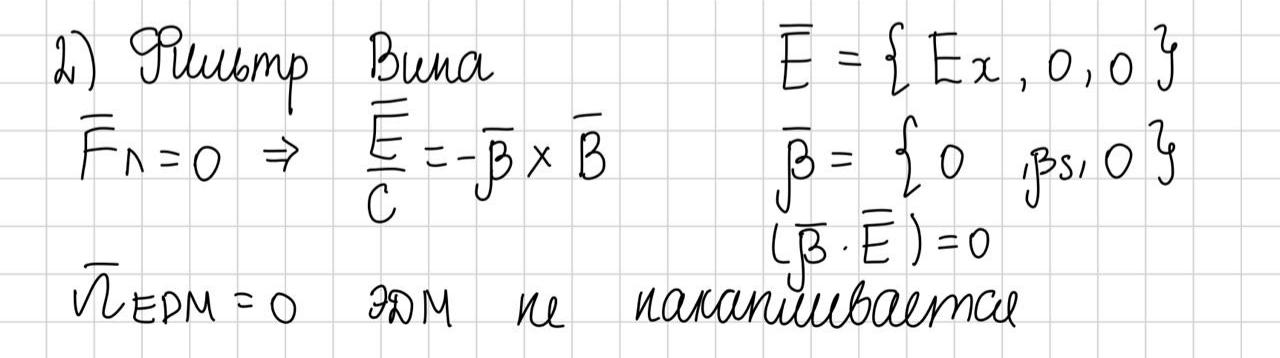 2) Фильтр Вина
F̅л = 0 ⇒ E̅/c = -β̅ × B̅
E̅ = { Ex, 0, 0 }
β̅ = { 0 , βs, 0 }
(β̅ · E̅) = 0
Ω̅EDM = 0 ЭДМ не накапливается